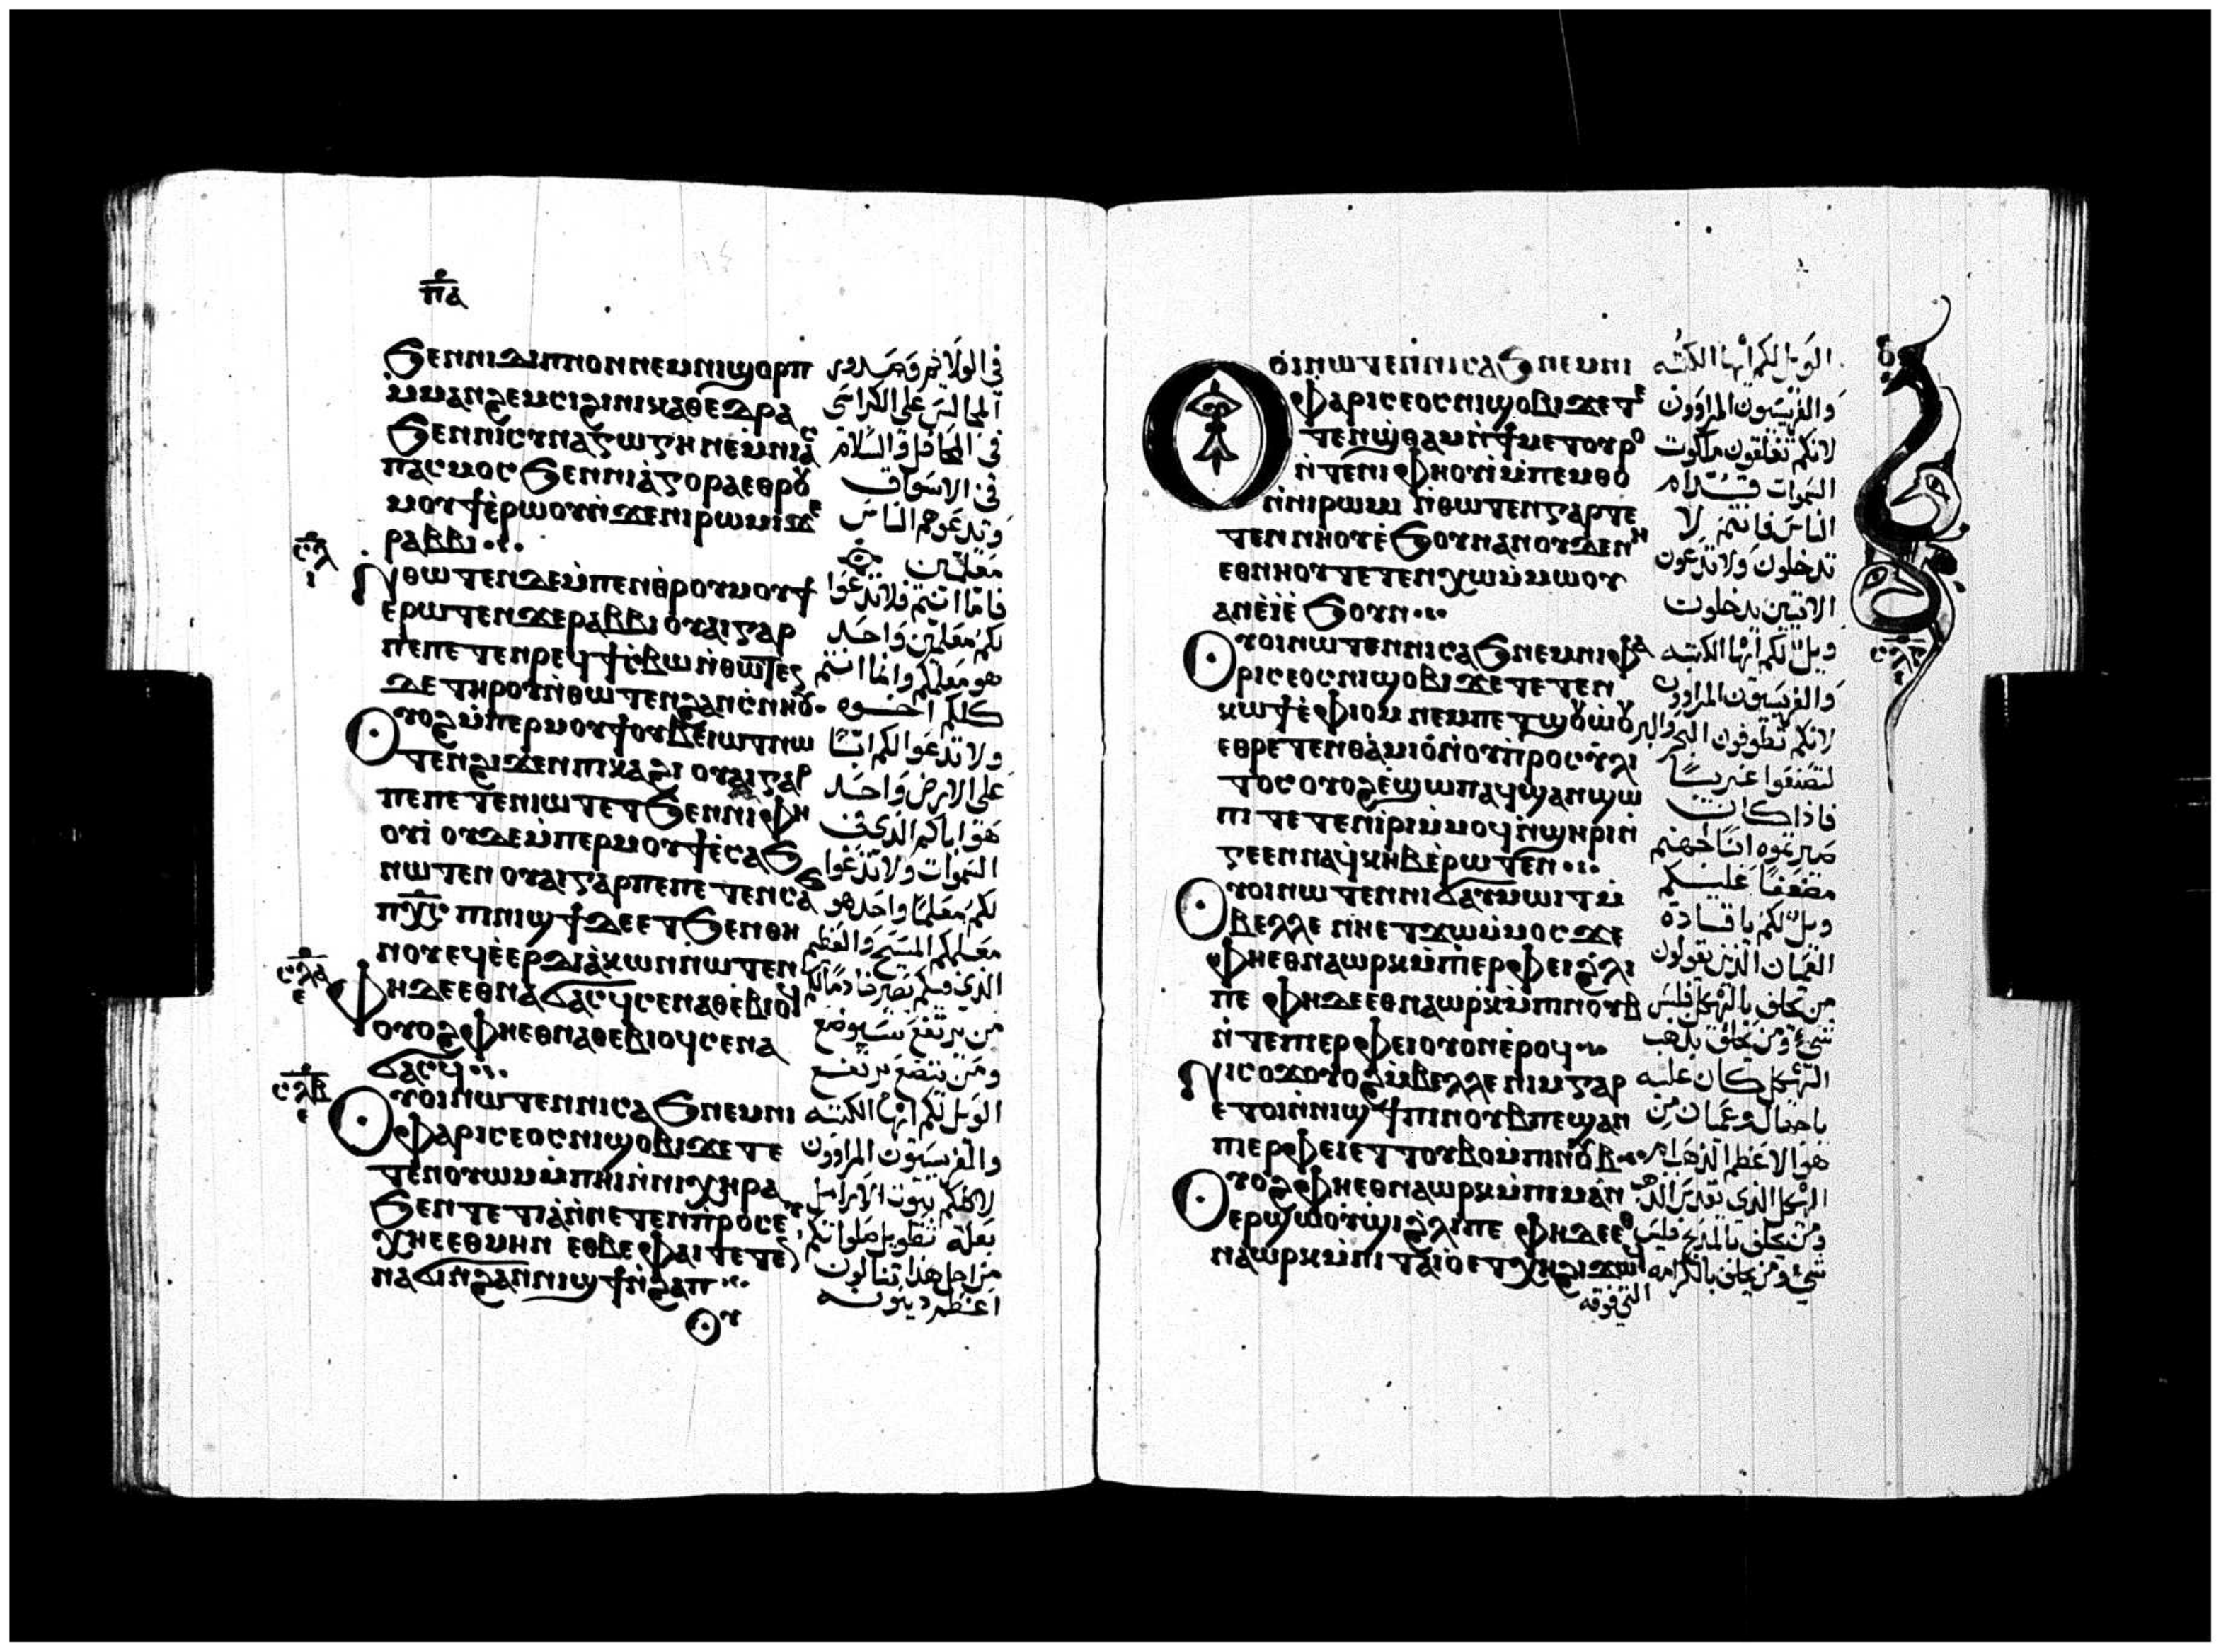 ⲡⲁ
ϧⲉⲛⲛⲓⲇⲓⲡⲛⲟⲛⲛⲉⲙⲛⲓϣⲟⲣⲡ
ⲙ̀ⲙⲁⲛϩⲉⲙⲥⲓϩⲓⲛⲓⲕⲁⲑⲉⲇⲣⲁ
ϧⲉⲛⲛⲓⲥⲩⲛⲁⲅⲱⲅⲏⲛⲉⲙⲛⲓⲁ̀ⲥ
ⲡⲁⲥⲙⲟⲥϧⲉⲛⲛⲓⲁ̀ⲅⲟⲣⲁⲉⲑⲣⲟⲩ
ⲙⲟⲩϯⲉ̀ⲣⲱⲟⲩⲛ̀ϫⲉⲛⲓⲣⲱⲙⲓϫⲉ
ⲣⲁⲃⲃⲓ
ⲛ̀ⲑⲱⲧⲉⲛⲇⲉⲙ̀ⲡⲉⲛⲑⲣⲟⲩⲙⲟⲩϯ
ⲉⲣⲱⲧⲉⲛϫⲉⲣⲁⲃⲃⲓ ⲟⲩⲁⲓⲅⲁⲣ
ⲡⲉⲡⲉⲧⲉⲛⲣⲉϥϯⲥ̀ⲃⲱ ⲛ̀ⲑⲱⲧⲉⲛ
ⲇⲉ ⲧⲏⲣⲟⲩⲛ̀ⲑⲱⲧⲉⲛϩⲁⲛⲥ̀ⲛⲏⲟⲩ
ⲟⲩⲟϩⲙ̀ⲡⲉⲣⲙⲟⲩϯⲟⲩⲃⲉⲓⲱⲧⲛⲱ
ⲧⲉⲛϩⲓϫⲉⲛⲡⲓⲕⲁϩⲓ ⲟⲩⲁⲓⲅⲁⲣ
ⲡⲉⲡⲉⲧⲉⲛⲓⲱⲧⲉⲧϧⲉⲛⲛⲓⲫⲏ
ⲟⲩⲓ̀ ⲟⲩⲇⲉⲙ̀ⲡⲉⲣⲙⲟⲩϯⲉ̀ⲥⲁϧ
ⲛⲱⲧⲉⲛ ⲟⲩⲁⲓⲅⲁⲣⲡⲉⲡⲉⲧⲉⲛⲥⲁϧ
ⲡⲭ̅ⲥ̅ ⲡⲓⲛⲓϣϯⲇⲉⲉⲧϧⲉⲛⲑⲏ
ⲛⲟⲩⲉϥⲉ̀ⲉⲣⲇⲓⲁ̀ⲕⲱⲛⲛⲱⲧⲉⲛ
ⲥⲗⲁ
ⲫⲏⲇⲉⲉⲑⲛⲁϭⲁⲥϥⲥⲉⲛⲁⲑⲉ̀ⲃⲓⲟϥ
ⲟⲩⲟϩⲫⲏⲉⲑⲛⲁⲑⲉⲃⲓⲟϥⲥⲉⲛⲁ
ϭⲁⲥϥ
ⲥⲗⲃ
ⲟⲩⲟⲓⲛⲱⲧⲉⲛⲛⲓⲥⲁϧⲛⲉⲙⲛⲓ
ⲫⲁⲣⲓⲥⲉⲟⲥⲛⲓϣⲟⲃⲓϫⲉⲧⲉ
ⲧⲉⲛⲟⲩⲱⲙⲙ̀ⲡⲏⲓⲛ̀ⲛⲓⲭⲏⲣⲁ
ϧⲉⲛⲧⲉⲧⲓⲁ̀ⲛ̀ⲛⲉⲧⲉⲛⲡ̀ⲣⲟⲥⲉⲩ
ⲭⲏⲉⲉⲑⲙⲏⲛ ⲉⲑⲃⲉⲫⲁⲓⲧⲉⲧⲉ
ⲛⲁϭⲓⲛ̀ϩⲁⲛⲛⲓϣϯⲛ̀ϩⲁⲡ
ⲟⲩ
في الاسواق
وتدعوهم الناس
معلمين
فاما انتم فلا تدعوا
لكم معلمين واحد
هو معلمكم وانما انتم
كلكم اخوه
ولا تدعوا لكم ابًا
على الارض واحد
هو اباكم الذي في
السموات ولا تدعوا
لكم معلمًا واحد هو
معلمكم المسيح والعظيم
من يرتفع سيوضع
ومن يتضع يرتفع
الويل لكم ايها الكتبه
والفريسيون المراوون
من اجل هذا تنالون
اعظم دينونه
ⲟⲩⲟⲓⲛⲱⲧⲉⲛⲛⲓⲥⲁϧⲛⲉⲙⲛⲓ
ⲫⲁⲣⲓⲥⲉⲟⲥⲛⲓϣⲟⲃⲓϫⲉⲧⲉ
ⲧⲉⲛϣ̀ⲑⲁⲙⲛ̀ϯⲙⲉⲧⲟⲩⲣⲟ
ⲛ̀ⲧⲉⲛⲓⲫⲏⲟⲩⲓ̀ⲙ̀ⲡⲉⲙⲑⲟ
ⲛ̀ⲛⲓⲣⲱⲙⲓ ⲛ̀ⲑⲱⲧⲉⲛⲅⲁⲣⲧⲉ
ⲧⲉⲛⲛⲏⲟⲩⲉ̀ϧⲟⲩⲛⲁⲛⲟⲩⲇⲉⲛⲏ
ⲉⲑⲛⲏⲟⲩⲧⲉⲧⲉⲛⲭⲱⲙ̀ⲙⲱⲟⲩ
ⲁⲛⲉ̀ⲓ̀ⲉ̀ϧⲟⲩⲛ
ⲟⲩⲟⲓⲛⲱⲧⲉⲛⲛⲓⲥⲁϧⲛⲉⲙⲛⲓⲫⲁ
ⲣⲓⲥⲉⲟⲥⲛⲓϣⲟⲃⲓϫⲉⲧⲉⲧⲉⲛ
ⲕⲱϯⲉ̀ⲫⲓⲟⲙ ⲛⲉⲙⲡⲉⲧϣⲟⲩⲱ̀ⲟⲩ
ⲉⲑⲣⲉⲧⲉⲛⲑⲁⲙⲓⲟ̀ⲛ̀ⲟⲩⲡ̀ⲣⲟⲥⲏ̀ⲗⲓ
ⲧⲟⲥ ⲟⲩⲟϩⲉ̀ϣⲱⲡⲁϥϣⲁⲛϣⲱ
ⲡⲓ ⲧⲉⲧⲉⲛⲓ̀ⲣⲓⲙ̀ⲙⲟϥⲛ̀ϣⲏⲣⲓⲛ̀
ⲅⲉⲉⲛⲛⲁϥ̀ⲕⲏⲃⲉ̀ⲣⲱⲧⲉⲛ
ⲟⲩⲟⲓⲛⲱⲧⲉⲛⲛⲓϭⲁⲩⲙⲱⲓⲧⲙ̀
ⲃⲉⲗⲗⲉ ⲛⲏⲉⲧϫⲱⲙ̀ⲙⲟⲥϫⲉ
ⲫⲏⲉⲑⲛⲁⲱⲣⲕⲙ̀ⲡⲓⲉⲣⲫⲉⲓϩ̀ⲗⲓ
ⲡⲉ ⲫⲏⲇⲉⲉⲑⲛⲁⲱⲣⲕⲙ̀ⲡⲓⲛⲟⲩⲃ
ⲛ̀ⲧⲉⲡⲓⲉⲣⲫⲉⲓⲟⲩⲟⲛⲉ̀ⲣⲟϥ
ⲛⲓⲥⲟϫⲟⲩⲟϩⲙ̀ⲃⲉⲗⲗⲉ ⲛⲓⲙⲅⲁⲣ
ⲉⲧⲟⲓⲛ̀ⲛⲓϣϯⲡⲓⲛⲟⲩⲃⲡⲉϣⲁⲛ
ⲡⲓⲉⲣⲫⲉⲓⲉⲧⲧⲟⲩⲃⲟⲙ̀ⲡⲓⲛⲟⲩⲃ
ⲟⲩⲟϩⲫⲏⲉⲑⲛⲁⲱⲣⲕⲙ̀ⲡⲓⲙⲁⲛ
ⲉⲣϣⲱⲟⲩϣⲓϩ̀ⲗⲓⲡⲉ ⲫⲏⲇⲉⲉⲑ
ⲛⲁⲱⲣⲕⲙ̀ⲡⲓⲧⲁⲓⲟⲉⲧⲭⲏϩⲓϫⲱϥ
الويل لكم ايها الكتبه
والفريسيون المراوون
لانكم تغلقون ملكوت
السموات قدام
الناس فانتم لا
تدخلون ولا تدعون
الاتيين يدخلون
ويل لكم ايها الكتبه
والفريسيون المراوون
لانكم تطوفون البحر والبر
لتصنعوا غريبًا
فاذا كان
مضعفًا عليكم
ويل لكم يا قادة
العميان الذين يقولون
من يحلف بالهيكل فليس
شيء ومن يحلف بذهب
الهيكل كان عليه
يا جهال وعميان من
هو الاعظم الذهب ام
ومن يحلف بالمذبح فليس
شيء ومن يحلف بالكرامه
التي فوقه